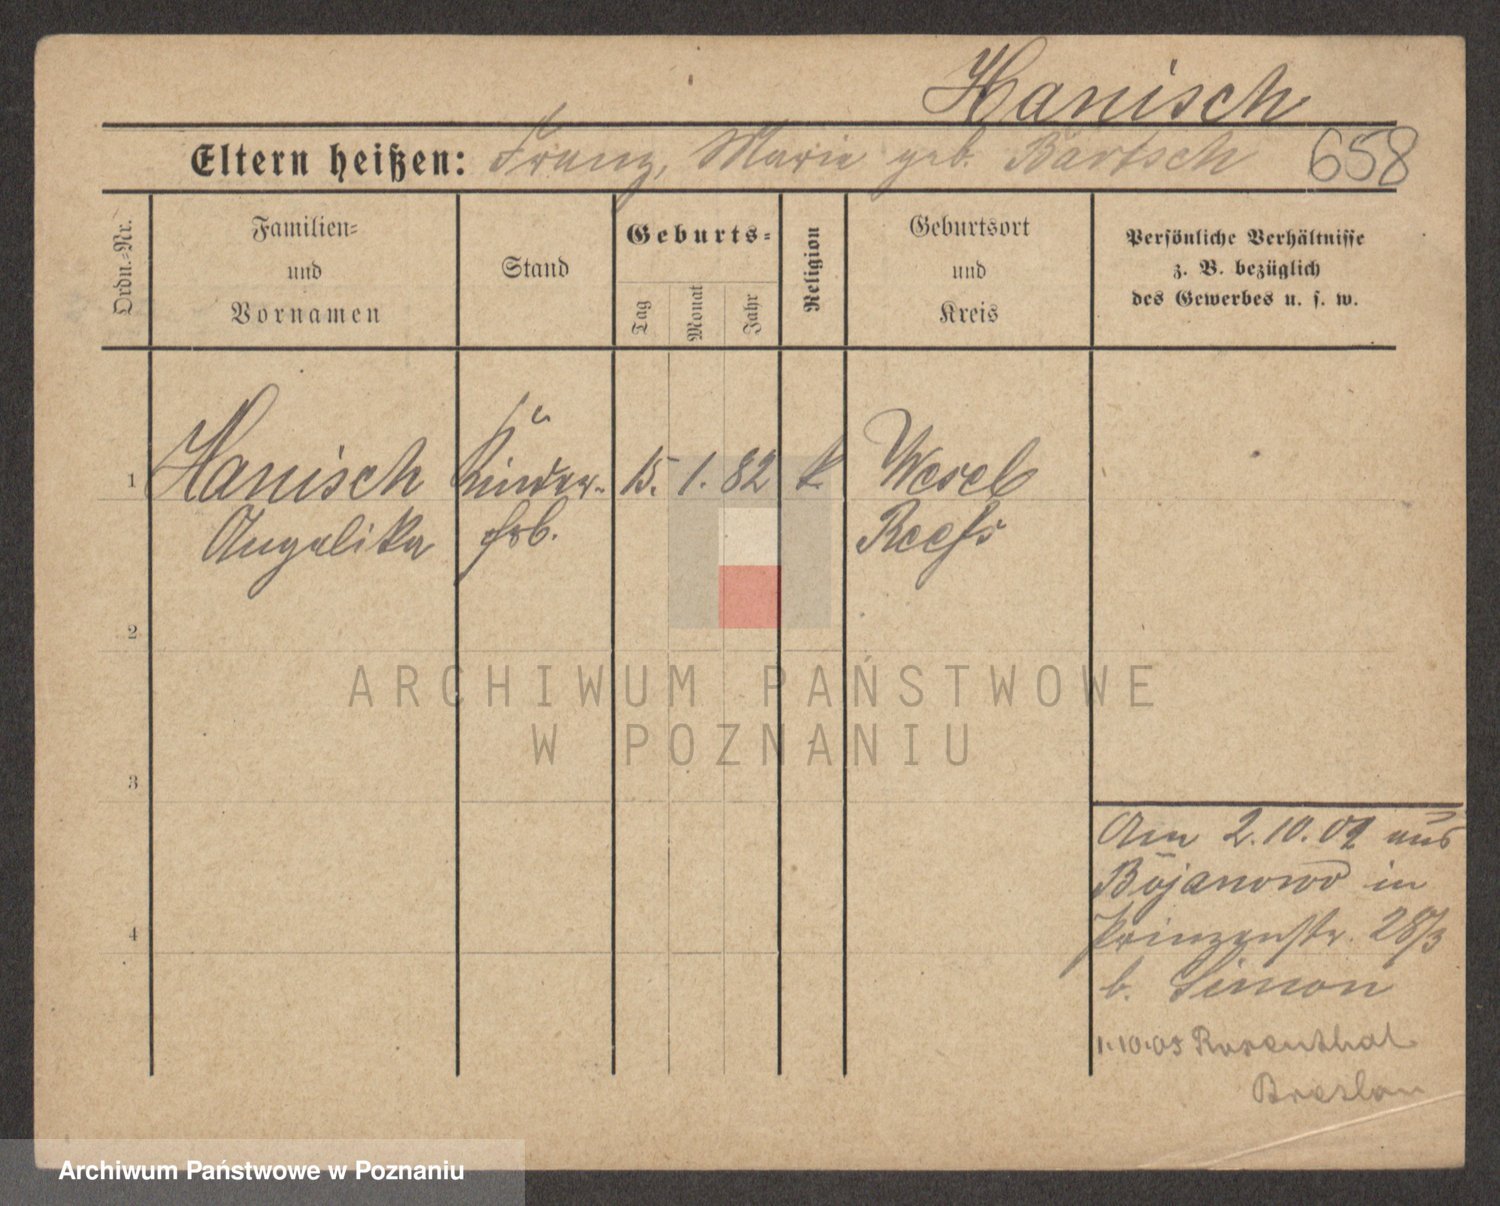 Hanisch
Eltern heißen: Franz, Marie geb. Bartsch 658
Ordn.=Nr.
Familien=
und
Vornamen
Stand
Geburts=
Tag
Monat
Jahr
Religion
Geburtsort
und
Kreis
Persönliche Verhältnisse
z. B. bezüglich
des Gewerbes u. s. w.
1 Hanisch Kinder- 15. 1. 82 k. Wesel
Angelika Rees
2
3
4
Am 2.10.02 aus
Bojanowo in
Prinzenstr. 28/3
b. Simon
1.10.05 Rosenthal
Breslau
ARCHIWUM PAŃSTWOWE
W POZNANIU
Archiwum Państwowe w Poznaniu